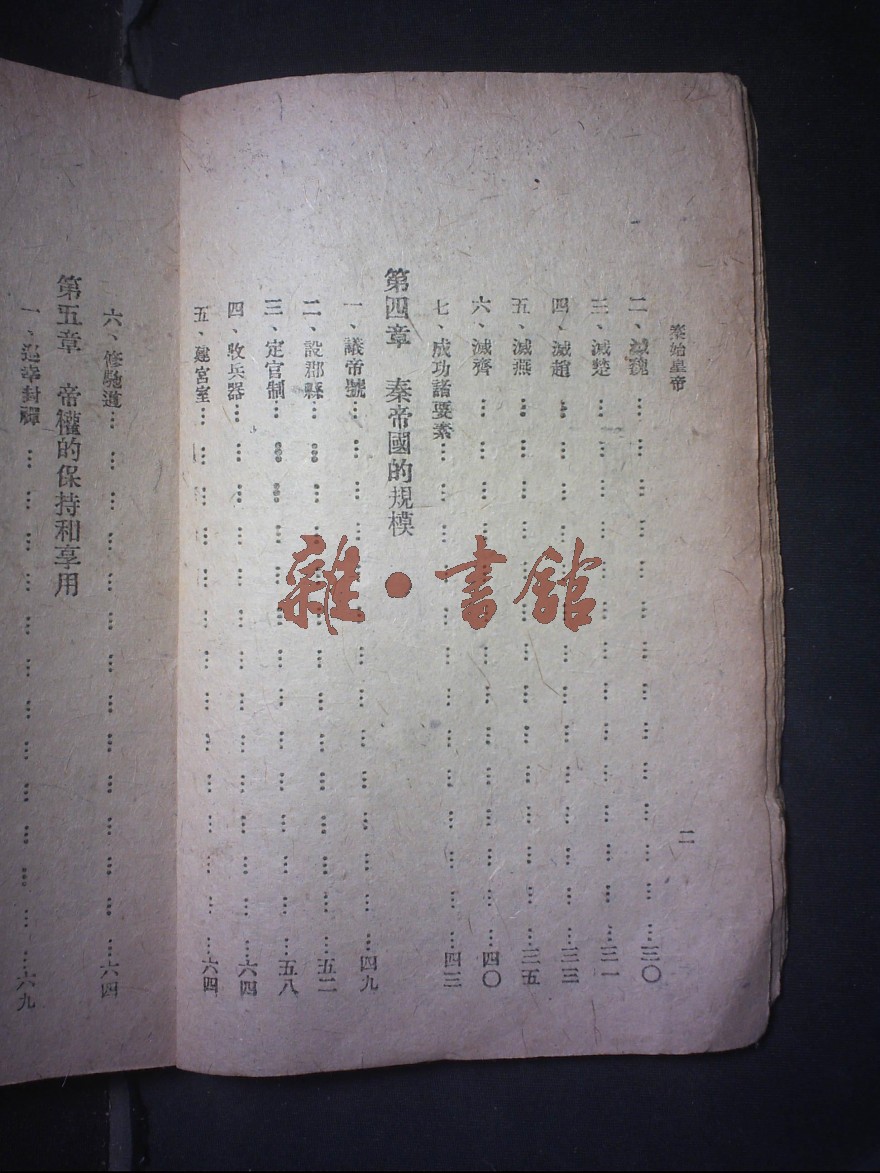 秦始皇帝
二
二、滅魏……三〇
三、滅楚……三一
四、滅趙……三三
五、滅燕……三五
六、滅齊……四〇
七、成功諸要素……四三
第四章 秦帝國的規模
一、議帝號……四九
二、設郡縣……五二
三、定官制……五八
四、收兵器……六四
五、建宮室……六四
六、修馳道……六四
第五章 帝權的保持和享用
一、巡幸封禪……六九
雜·書館